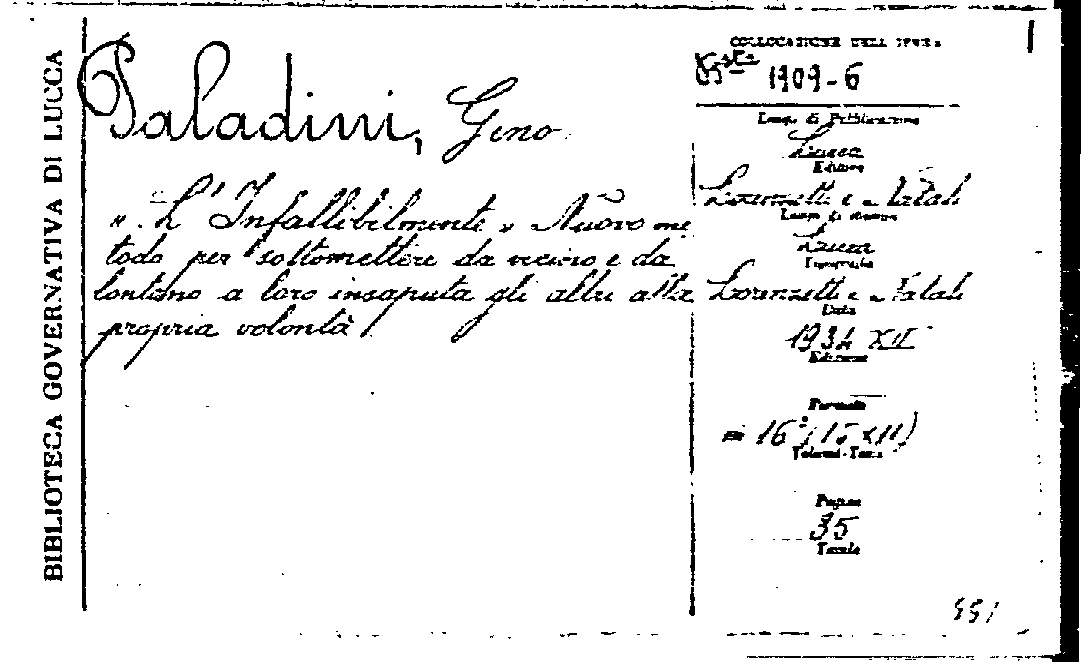 BIBLIOTECA GOVERNATIVA DI LUCCA
Paladini, Gino
"L'Infallibilmente" Nuovo me
todo per sottomettere da vicino e da
lontano a loro insaputa gli altri alla
propria volontà
COLLOCAZIONE DELL'OPERA
Bsta 1909-6
Luogo di Pubblicazione
Lucca
Editore
Lorenzetti e Natali
Luogo di stampa
Lucca
Tipografia
Lorenzetti e Natali
Data
1934 XII
Edizione
Formato
in 16° (15 x 11)
Volumi-Tomi
Pagine
35
Tavole
551